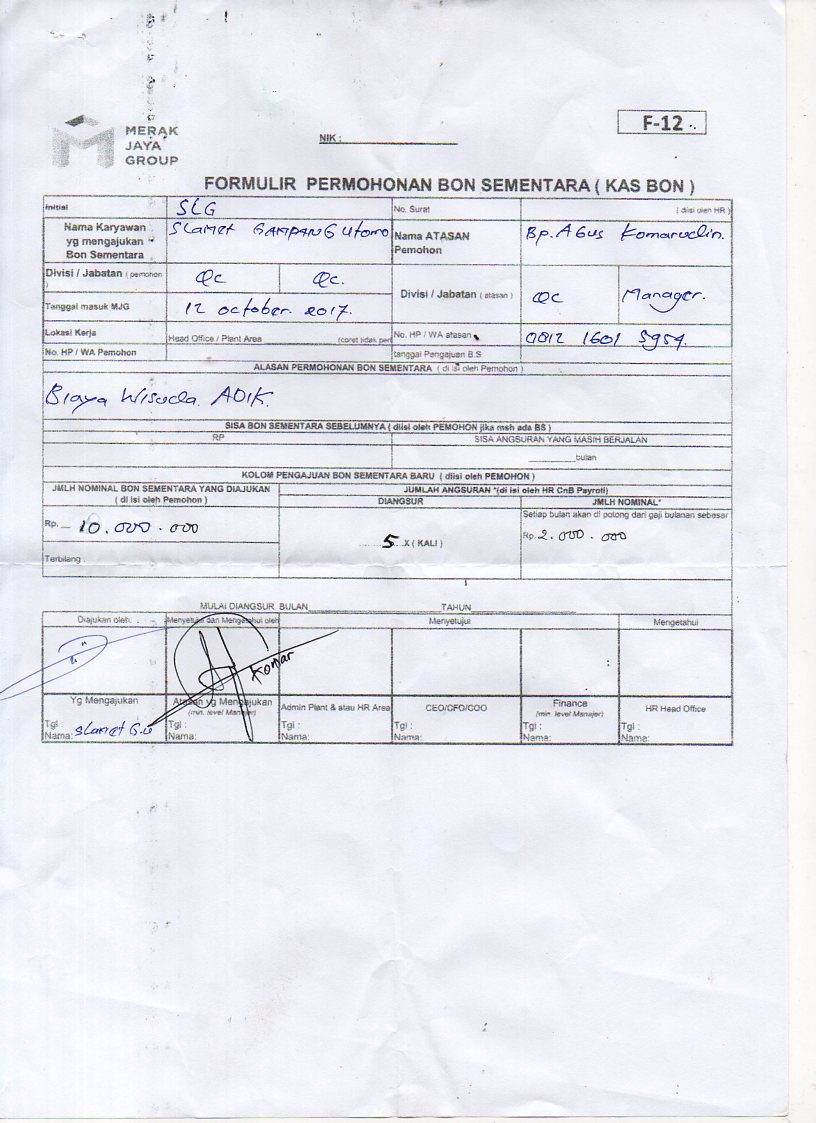 MERAK
JAYA
GROUP
NIK :
F-12
FORMULIR PERMOHONAN BON SEMENTARA ( KAS BON )
Initial SLG No. Surat ( diisi oleh HR )
Nama Karyawan yg mengajukan Bon Sementara Slamet GAMPANG Utomo Nama ATASAN Pemohon Bp. AGus Komarudin.
Divisi / Jabatan ( pemohon ) Qc Qc. Divisi / Jabatan ( atasan ) QC Manager.
Tanggal masuk MJG 12 october. 2017.
Lokasi Kerja Head Office / Plant Area (coret tidak perl No. HP / WA atasan 0812 1601 5959.
No. HP / WA Pemohon tanggal Pengajuan B.S
ALASAN PERMOHONAN BON SEMENTARA ( di isi oleh Pemohon )
Biaya Wisuda ADIK.
SISA BON SEMENTARA SEBELUMNYA ( diisi oleh PEMOHON jika msh ada BS )
RP SISA ANGSURAN YANG MASIH BERJALAN
bulan
KOLOM PENGAJUAN BON SEMENTARA BARU ( diisi oleh PEMOHON )
JMLH NOMINAL BON SEMENTARA YANG DIAJUKAN ( di isi oleh Pemohon ) JUMLAH ANGSURAN *(di isi oleh HR CnB Payroll)
DIANGSUR JMLH NOMINAL*
Setiap bulan akan di potong dari gaji bulanan sebesar
Rp. 10.000.000 5 X ( KALI ) Rp. 2.000.000
Terbilang :
MULAI DIANGSUR BULAN TAHUN
Diajukan oleh. Menyetujui dan Mengetahui oleh Menyetujui Mengetahui
Komar
Yg Mengajukan Atasan yg Mengajukan (min. level Manajer) Admin Plant & atau HR Area CEO/CFO/COO Finance (min. level Manajer) HR Head Office
Tgl : Tgl : Tgl : Tgl : Tgl : Tgl :
Nama: Slamet G.U Nama: Nama: Nama: Nama: Nama: